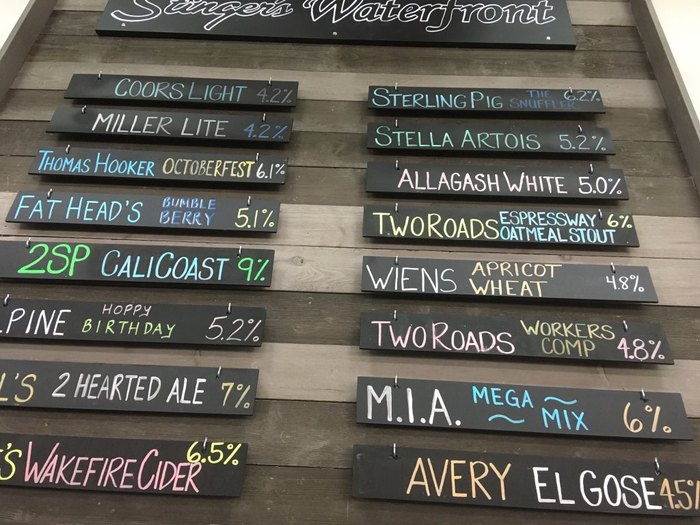 Stinger's Waterfront
COORS LIGHT 4.2%
MILLER LITE 4.2%
THOMAS HOOKER OCTOBERFEST 6.1%
FAT HEAD'S BUMBLE BERRY 5.1%
2SP CALICOAST 9%
PINE HOPPY BIRTHDAY 5.2%
L'S 2 HEARTED ALE 7%
'S WAKEFIRE CIDER 6.5%
STERLING PIG THE SNUFFLER 6.2%
STELLA ARTOIS 5.2%
ALLAGASH WHITE 5.0%
TWO ROADS ESPRESSWAY OATMEAL STOUT 6%
WIENS APRICOT WHEAT 4.8%
TWO ROADS WORKERS COMP 4.8%
M.I.A. MEGA MIX 6%
AVERY EL GOSE 4.5%